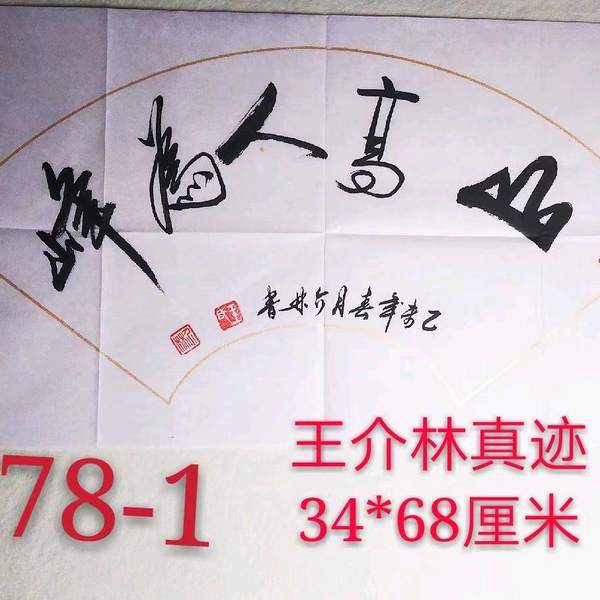 山高人為峰
乙未年春月介林書
王介林真迹
78-1
34*68厘米